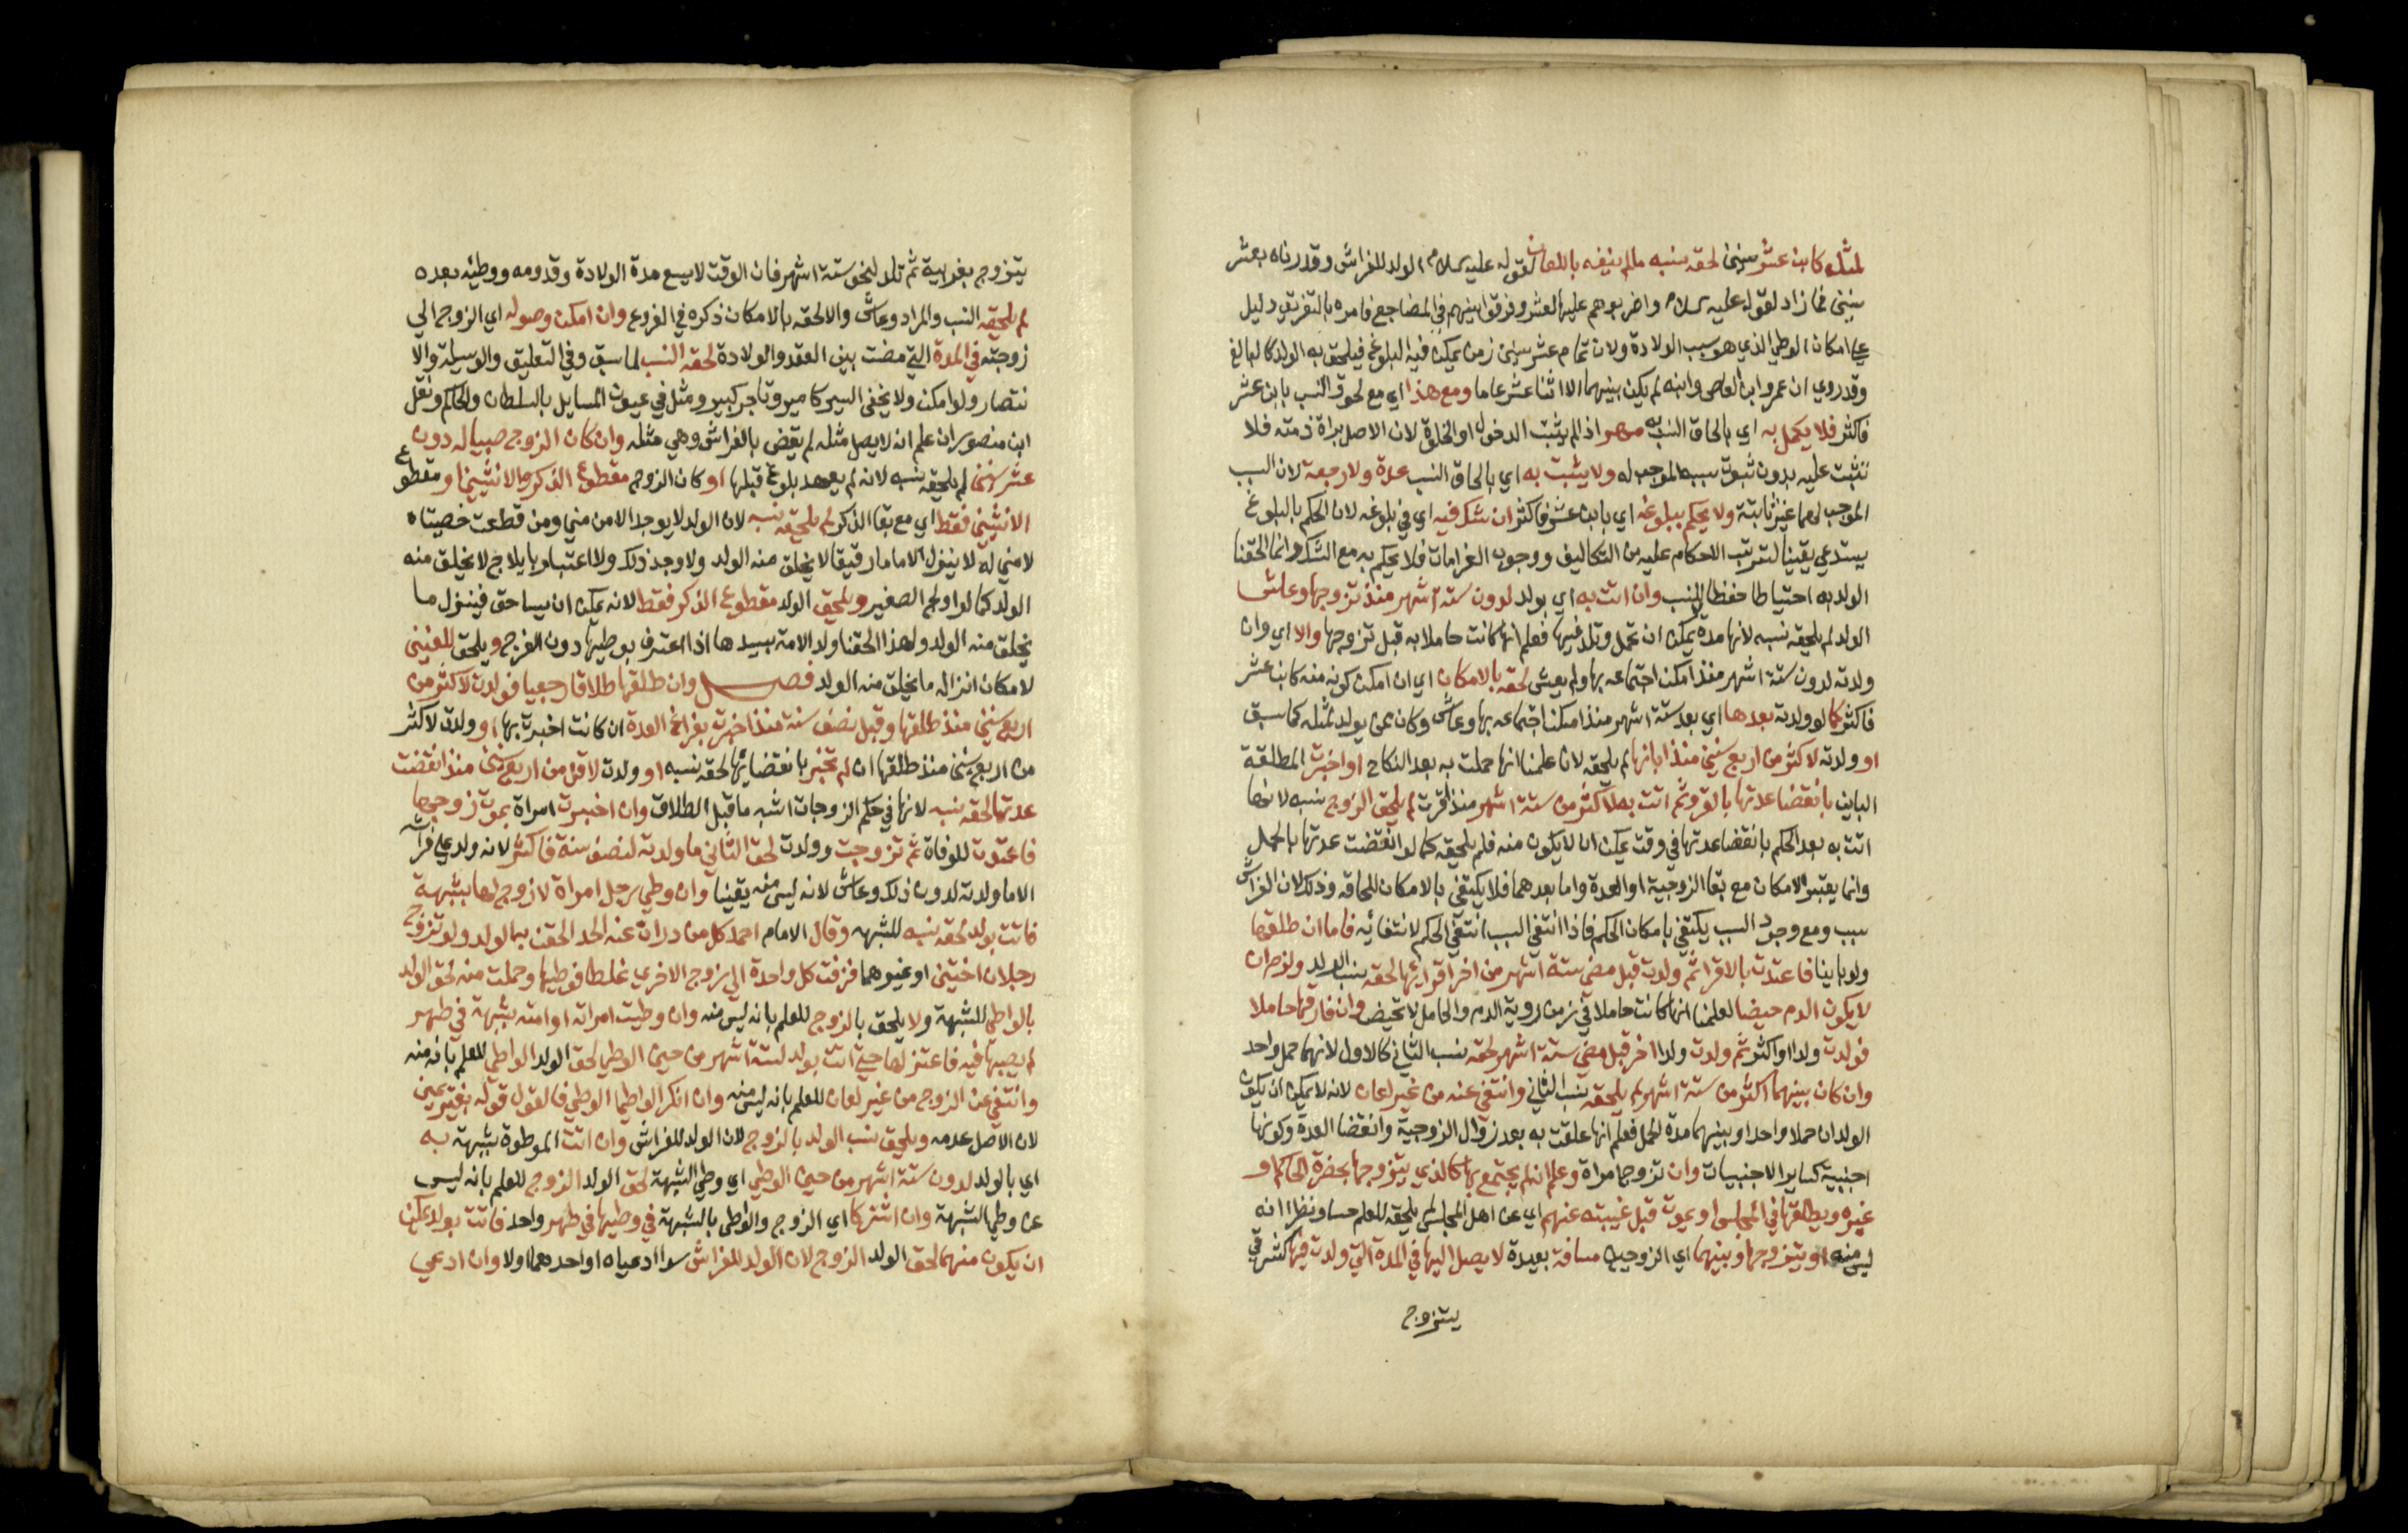 لمثله كابن عشر سنين لحقه نسبه مالم ينفه باللعان لقوله عليه السلام الولد للفراش وقدرناه بعشر
سنين فما زاد لقوله عليه السلام واضربوهم عليها لعشر وفرقوا بينهم في المضاجع فامره بالتفريق دليل
علي امكان الوطي الذي هو سبب الولادة ولان تمام عشر سنين زمن يمكن فيه البلوغ فيلحق به الولد كالبالغ
وقد روي ان عمرو ابن العاص وابنه لم يكن بينهما الا اثنا عشر عاما ومع هذا اي مع لحوق النسب بابن عشر
فاكثر فلا يكمل به اي بالحاق النسب به مهر اذا لم يثبت الدخول او الخلوة لان الاصل براة ذمته فلا
تثبت عليه بدون ثبوت سببه الموجب له ولا يثبت به اي بالحاق النسب عدة ولا رجعة لان السبب
الموجب لهما غير ثابتة ولا يحكم ببلوغه اي بابن عشر فاكثر ان شك فيه اي في بلوغه لان الحكم بالبلوغ
يستدعي يقينا لترتب الاحكام عليه من التكاليف ووجوب الغرامات فلا يحكم به مع الشك وانما الحقنا
الولد به احتياطا حفظا للنسب وان اتت به اي بولد لدون ستة اشهر منذ تزوجها وعاش
الولد لم يلحقه نسبه لانها مدة يمكن ان تحمل وتلد فيها فعلم انها كانت حاملا به قبل تزوجها والا اي وان
ولدته لدون ستة اشهر منذ امكن اجتماعه بها ولم يعش لحقه بالامكان اي ان امكن كونه منه كابن عشر
فاكثر كما لو ولدته بعدها اي بعد ستة اشهر منذ امكن اجتماعه بها وعاش وكان ممن يولد لمثله كما سبق
او ولدته لاكثر من اربع سنين منذ ابانها لم يلحقه لانا علمنا انها حملت به بعد النكاح او اخبرت المطلقة
الباين بانقضا عدتها بالقرو ثم اتت به لاكثر من ستة اشهر منذ اقرت لم يلحق الزوج نسبه لانها
اتت به بعد الحكم بانقضا عدتها في وقت يمكن ان لا يكون منه فلم يلحقه كما لو انقضت عدتها بالحمل
وانما يعتبر الامكان مع بقا الزوجية او العدة واما بعدهما فلا يكتفي بالامكان للحاقه وذلك لان الفراش
سبب ومع وجود السبب يكتفي بامكان الحكم فاذا انتفي السبب انتفي الحكم لانتفائه فاما ان طلقها
ولو باينا فاعتدت بالاقرا ثم ولدت قبل مضي ستة اشهر من اخر اقرايها لحقه نسب الولد ولزم ان
لا يكون الدم حيضا لعلمنا انها كانت حاملا في زمن روية الدم والحامل لا تحيض وان فارقها حاملا
فولدت ولدا او اكثر ثم ولدت ولدا اخر قبل مضي ستة اشهر لحقه نسب الثاني كالاول لانهما حمل واحد
وان كان بينهما اكثر من ستة اشهر لم يلحقه نسب الثاني وانتفي عنه من غير لعان لانه لا يمكن ان يكون
الولدان حملا واحدا وبينهما مدة الحمل فعلم انها علقت به بعد زوال الزوجية وانقضا العدة وكونها
اجنبية كساير الاجنبيات وان تزوج امراة وعلم انه لم يجتمع بها كالذي يتزوجها بحضرة الحاكم او
غيره ويطلقها في المجلس او يموت قبل غيبته عنهم اي عن اهل المجلس لم يلحقه للعلم حسا ونظرا انه
ليس منه او يتزوجها وبينهما اي الزوجين مسافة بعيدة لا يصل اليها في المدة التي ولدت فيها كشرقي
يتزوج
يتزوج بغربية ثم تلد لنحو ستة اشهر فان الوقت لا يسع مدة الولادة وقدومه ووطيه بعده
لم يلحقه النسب والمراد وعاش والا لحقه بالامكان ذكره في الفروع وان امكن وصوله اي الزوج الي
زوجته في المدة التي مضت بين العقد والولادة لحقه النسب لما سبق وفي التعليق والوسيلة والا
نتصار ولو امكن ولا يخفي السير كامير وتاجر كبير ومثل في عيون المسايل بالسلطان والحاكم ونقل
ابن منصور ان علم انه لا يصل مثله لم يقض بالفراش وهي مثله وان كان الزوج صبيا له دون
عشر سنين لم يلحقه نسبه لانه لم يعهد بلوغ قبلها او كان الزوج مقطوع الذكر والانثيين او مقطوع
الانثيين فقط اي مع بقا الذكر لم يلحقه نسبه لان الولد لا يوجد الا من مني ومن قطعت خصيتاه
لا مني له لا ينزل الا ماء رقيقا لا يخلق منه الولد ولا وجد ذلك ولا اعتبار بايلاج لا يخلق منه
الولد كما لو اولج الصغير ويلحق الولد مقطوع الذكر فقط لانه يمكن ان يساحق فينزل ما
يخلق منه الولد ولهذا الحقنا ولد الامة بسيدها اذا اعترف بوطيها دون الفرج ويلحق العنين
لامكان انزاله ما يخلق منه الولد فصل وان طلقها طلاقا رجعيا فولدت لاكثر من
اربع سنين منذ طلقها وقبل نصف سنة منذ اخبرت بفراغ العدة ان كانت اخبرت بها او ولدت لاكثر
من اربع سنين منذ طلقها ان لم تخبر بانقضائها لحقه نسبه او ولدت لاقل من اربع سنين منذ انقضت
عدتها لحقه نسبه لانها في حكم الزوجات اشبه ما قبل الطلاق وان اخبرت امراة بموت زوجها
فاعتدت للوفاة ثم تزوجت وولدت لحق الثاني ما ولدته لنصف سنة فاكثر لانه ولد علي فراشه
الا ما ولدته لدون ذلك وعاش لانه ليس منه يقينا وان وطي رجل امراة لا زوج لها بشبهة
فاتت بولد لحقه نسبه للشبهه وقال الامام احمد كل من درات عنه الحد الحقت به الولد ولو تزوج
رجلان اختين او غيرهما فزفت كل واحدة الي زوج الاخري غلطا فوطيها وحملت منه لحق الولد
بالواطي للشبهة ولا يلحق بالزوج للعلم بانه ليس منه وان وطيت امراته او امته بشبهة في طهر
لم يصبها فيه فاعتزلها حتي اتت بولد لستة اشهر من حين الوطي لحق الولد الواطي للعلم بانه منه
وانتفي عن الزوج من غير لعان للعلم بانه ليس منه وان انكر الواطي الوطي فالقول قوله بغير يمين
لان الاصل عدمه ويلحق نسب الولد بالزوج لان الولد للفراش وان اتت الموطوة بشبهة به
اي بالولد لدون ستة اشهر من حين الوطي اي وطي الشبهة لحق الولد الزوج للعلم بانه ليس
من وطي الشبهة وان اشتركا اي الزوج والواطي بالشبهة في وطيها في طهر واحد فاتت بولد يمكن
ان يكون منهما لحق الولد الزوج لان الولد للفراش سوا ادعياه او احدهما اولا وان ادعي